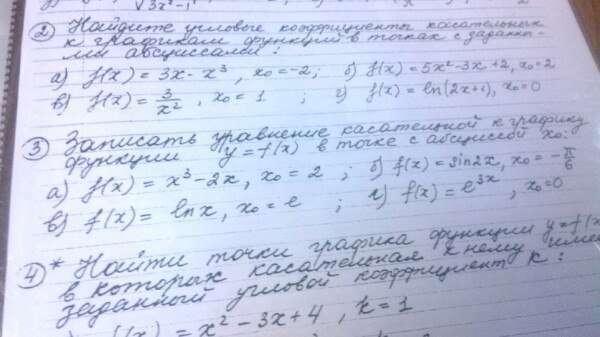 √3x²-1
② Найдите угловые коэффициенты касательных
к графикам функций в точках с заданны-
ми абсциссами:
а) f(x) = 3x - x³, x₀ = -2; б) f(x) = 5x² - 3x + 2, x₀ = 2
в) f(x) = 3/x², x₀ = 1 ; г) f(x) = ln(2x+1), x₀ = 0
③ Записать уравнение касательной к графику
функции y = f(x) в точке с абсциссой x₀:
а) f(x) = x³ - 2x, x₀ = 2 ; б) f(x) = sin2x, x₀ = -π/6
в) f(x) = lnx, x₀ = e ; г) f(x) = e³ˣ, x₀ = 0
④* Найти точки графика функции y = f(x
в которых касательная к нему име
заданный угловой коэффициент k:
f(x) = x² - 3x + 4, k = 1